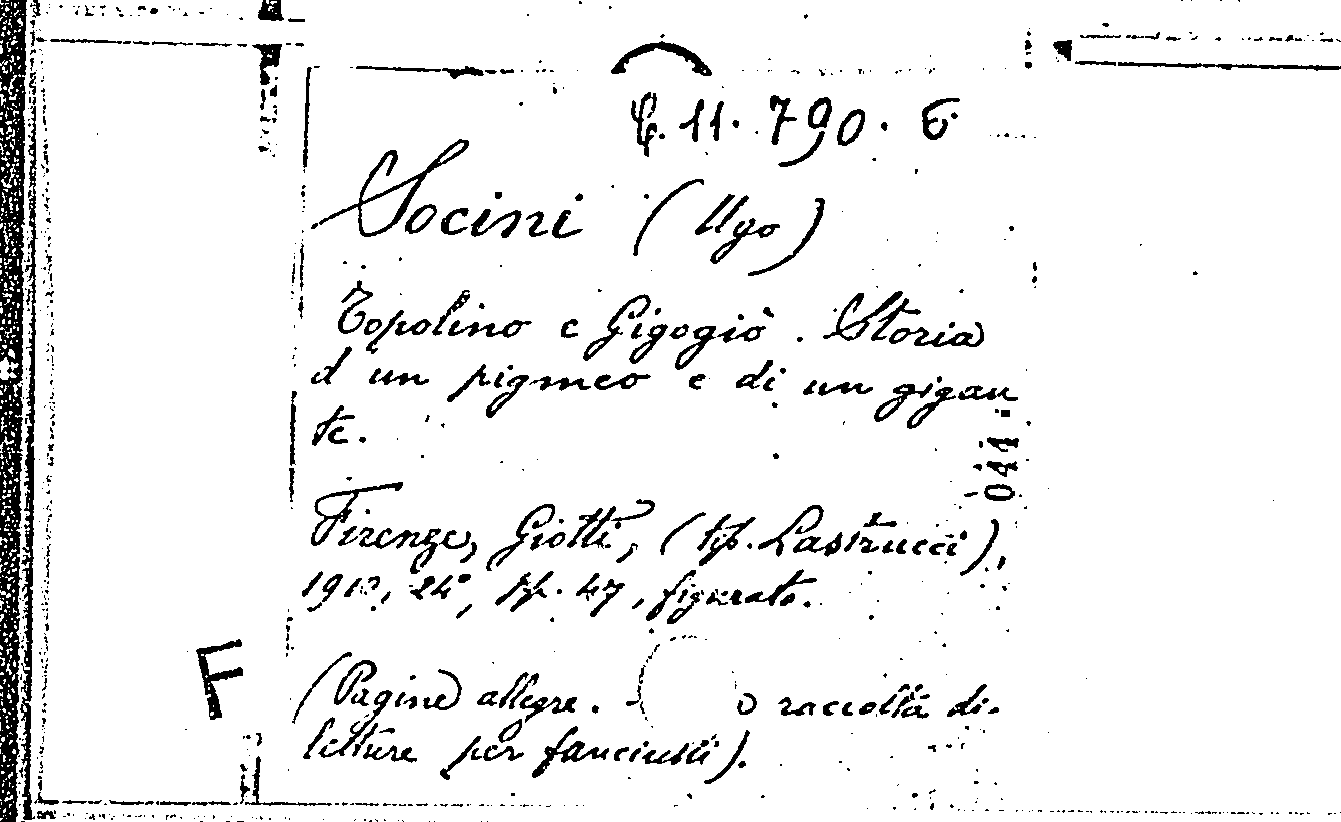 C. 11. 790. 6
Socini (Ugo)
Topolino e Gigogiò. Storia
d'un pigmeo e di un gigan
te.
044
Firenze, Giotti, (tip. Lastrucci),
24°, pp. 47, figurato.
F
(Pagine allegre. raccolta di
letture per fanciulli).